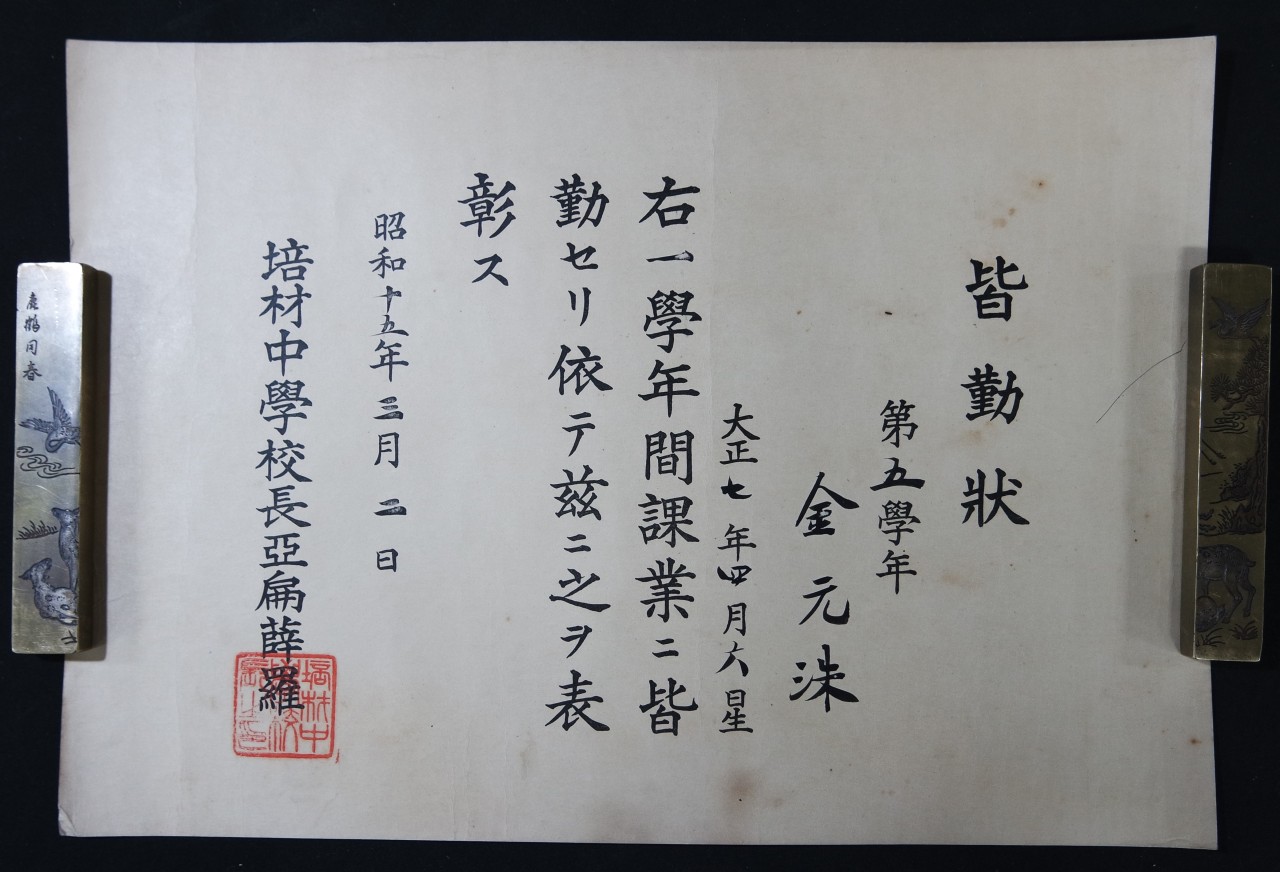 皆勤狀
第五學年
金元洙
大正七年四月六日生
右一學年間課業ニ皆
勤セリ依テ玆ニ之ヲ表
彰ス
昭和十五年三月二日
培材中學校長亞扁薛羅
鹿鶴同春